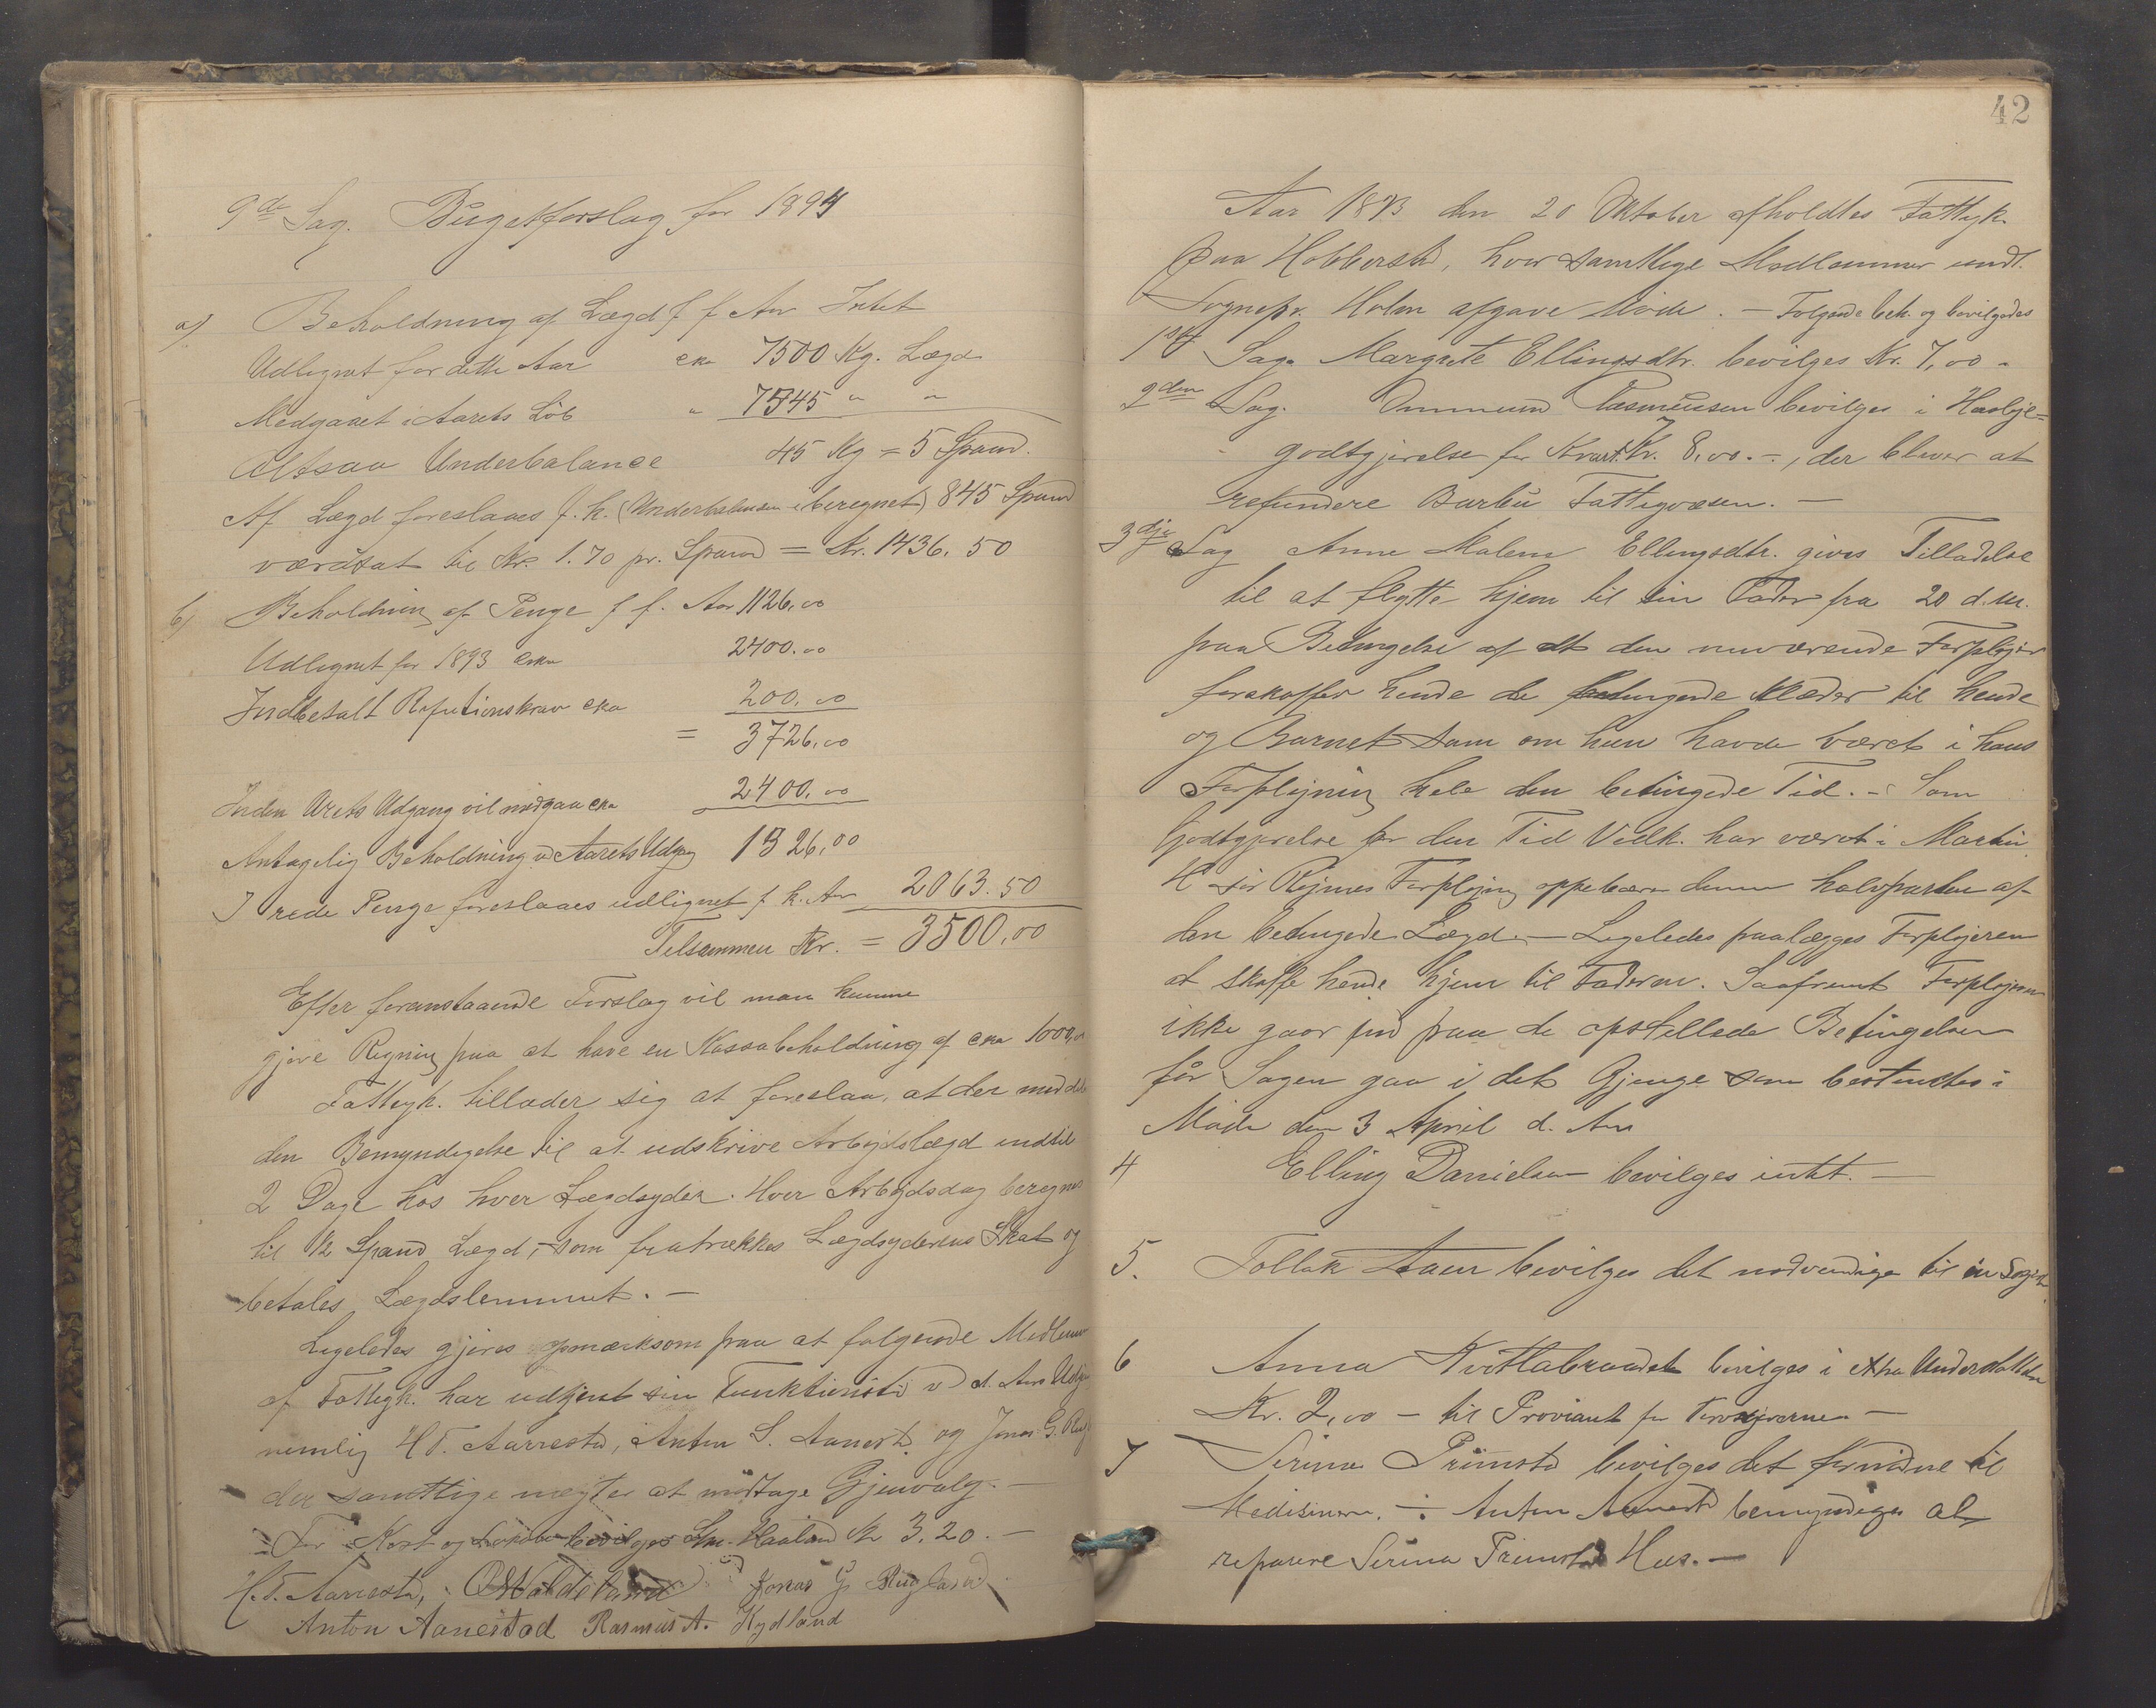 9de Sag. Búgetforslag for 1894
a) Beholdning af Lægd f f Aar Intet
Udlignet for dette Aar cka 7500 Kg. Lægd
Medgaaet i Aarets Løb " 7545 " "
Altsaa Underbalance 45 Kg = 5 Spand.
Af Lægd foreslaaes f. k. (Underbalansen iberegnet) 845 Spand
værdsat til Kr. 1.70 pr. Spand = Kr. 1436.50
b) Beholdning af Penge f f. Aar 1126,00
Udlignet for 1893 cka 2400.00
Indbetalt Refutionskrav cka 200,00
= 3726,00
Inden Arets Udgang vil medgaa cka 2400,00
Antagelig Beholdning v Aarets Udgang 1326,00
I rede Penge foreslaaes udlignet f k. Aar 2063.50
Tilsammen Kr. = 3500,00
Efter foranstaaende Forslag vil man kunne
gjøre Regning paa at have en Kassabeholdning af cka 1000,00
Fattigk. tillader sig at foreslaa, at der meddeles
den Bemyndigelse til at udskrive Arbejdslægd indtil
2 Dage hos hver Lægdsyder. Hver Arbejdsdag beregnes
til ½ Spand Lægd, som fratrækkes Lægdsyderens Skat og
betales Lægdslemmet. —
Ligeledes gjøres opmærksom paa at følgende Medlemmer
af Fattigk. har udtjent sin Funktionstid v d. Aars Udgang
nemlig H T. Aarrestad, Anton S. Aanestd. og Jonas G. Rugl
der samtlige nægter at modtage Gjenvalg. —
For Kost og bevilges Haaland Kr 3,20. —
H. T. Aarrestad, Jonas G Rugland
Anton Aanestad Rasmus A. Hydland
42
Aar 1893 den 20 Oktober afholdtes Fattigk.
paa Hobberstd, hvor samtlige Medlemmer undt.
Sognepr. Holm afgave Møde. — Følgende beh. og bevilgedes
1ste Sag. Margrete Ellingsdtr. bevilges Kr. 7,00 -
2den Sag. Ommund Rasmussen bevilges i
godtgjørelse for Kvart. Kr. 8,00. -, der bliver at
refundere Barbu Fattigvæsen. —
3dje Sag Anne Malene Ellingsdtr. gives Tilladelse
til at flytte hjem til sin Fader fra 20 d.M.
paa Betingelse af at den nuværende Forplejer
forskaffer hende de betingede Klæder til hende
og Barnet som om hun havde været i hans
Forplejning hele den betingede Tid. - Som
Godtgjørelse for den Tid Vedk. har været i Martin
H Forplejning oppebærer denne halvparten af
den betingede Lægd. — Ligeledes paalægges Forplejeren
at skaffe hende hjem til Faderen. Saafremt Forplejeren
ikke gaar ind paa de opstillede Betingelser
får Sagen gaa i det Gjenge som bestemtes i
Møde den 3 April d. Aar
4 Elling Danielsen bevilges intet. —
5. Tollak bevilges det nødvendige til
6 Anna bevilges i extra Understøttelse
Kr. 2,00 - til Proviant for Torvskjærerne —
7 Serina Primstd bevilges det fornødne til
Medisinern. Anton Aanestd bemyndiges at
reparere Serina Primstads Hus. —